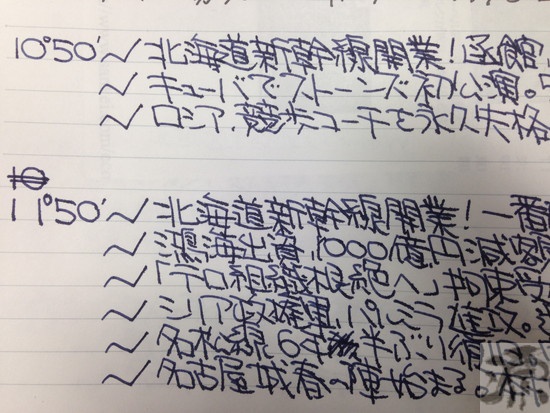 10°50′〜北海道新幹線開業！函館
〜キューバでストーンズ初公演。
〜ロシア、競歩コーチを永久失格
11°50′〜北海道新幹線開業！一番
〜鴻海出資、1000億円減額
〜「テロ組織根絶へ」
〜シリア政権軍、パルミラ進攻。
〜名松線6年半ぶり復
〜名古屋城春の陣始まる。